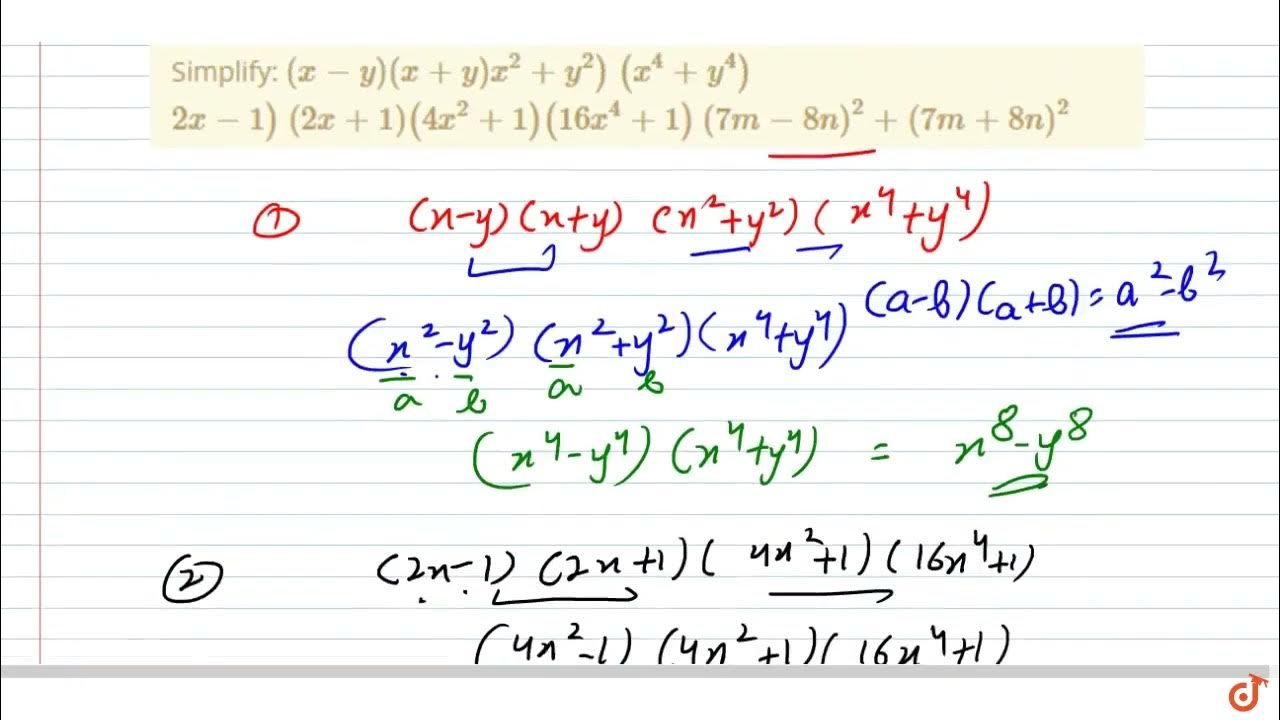 Simplify: (x − y)(x + y)x² + y²) (x⁴ + y⁴)
2x − 1) (2x + 1)(4x² + 1)(16x⁴ + 1) (7m − 8n)² + (7m + 8n)²
① (x-y)(x+y) (x²+y²)(x⁴+y⁴)
(a-b)(a+b)=a²-b²
(x²-y²) (x²+y²)(x⁴+y⁴)
a b a b
(x⁴-y⁴)(x⁴+y⁴) = x⁸-y⁸
② (2x-1)(2x+1)(4x²+1)(16x⁴+1)
(4x²-1)(4x²+1)(16x⁴+1)